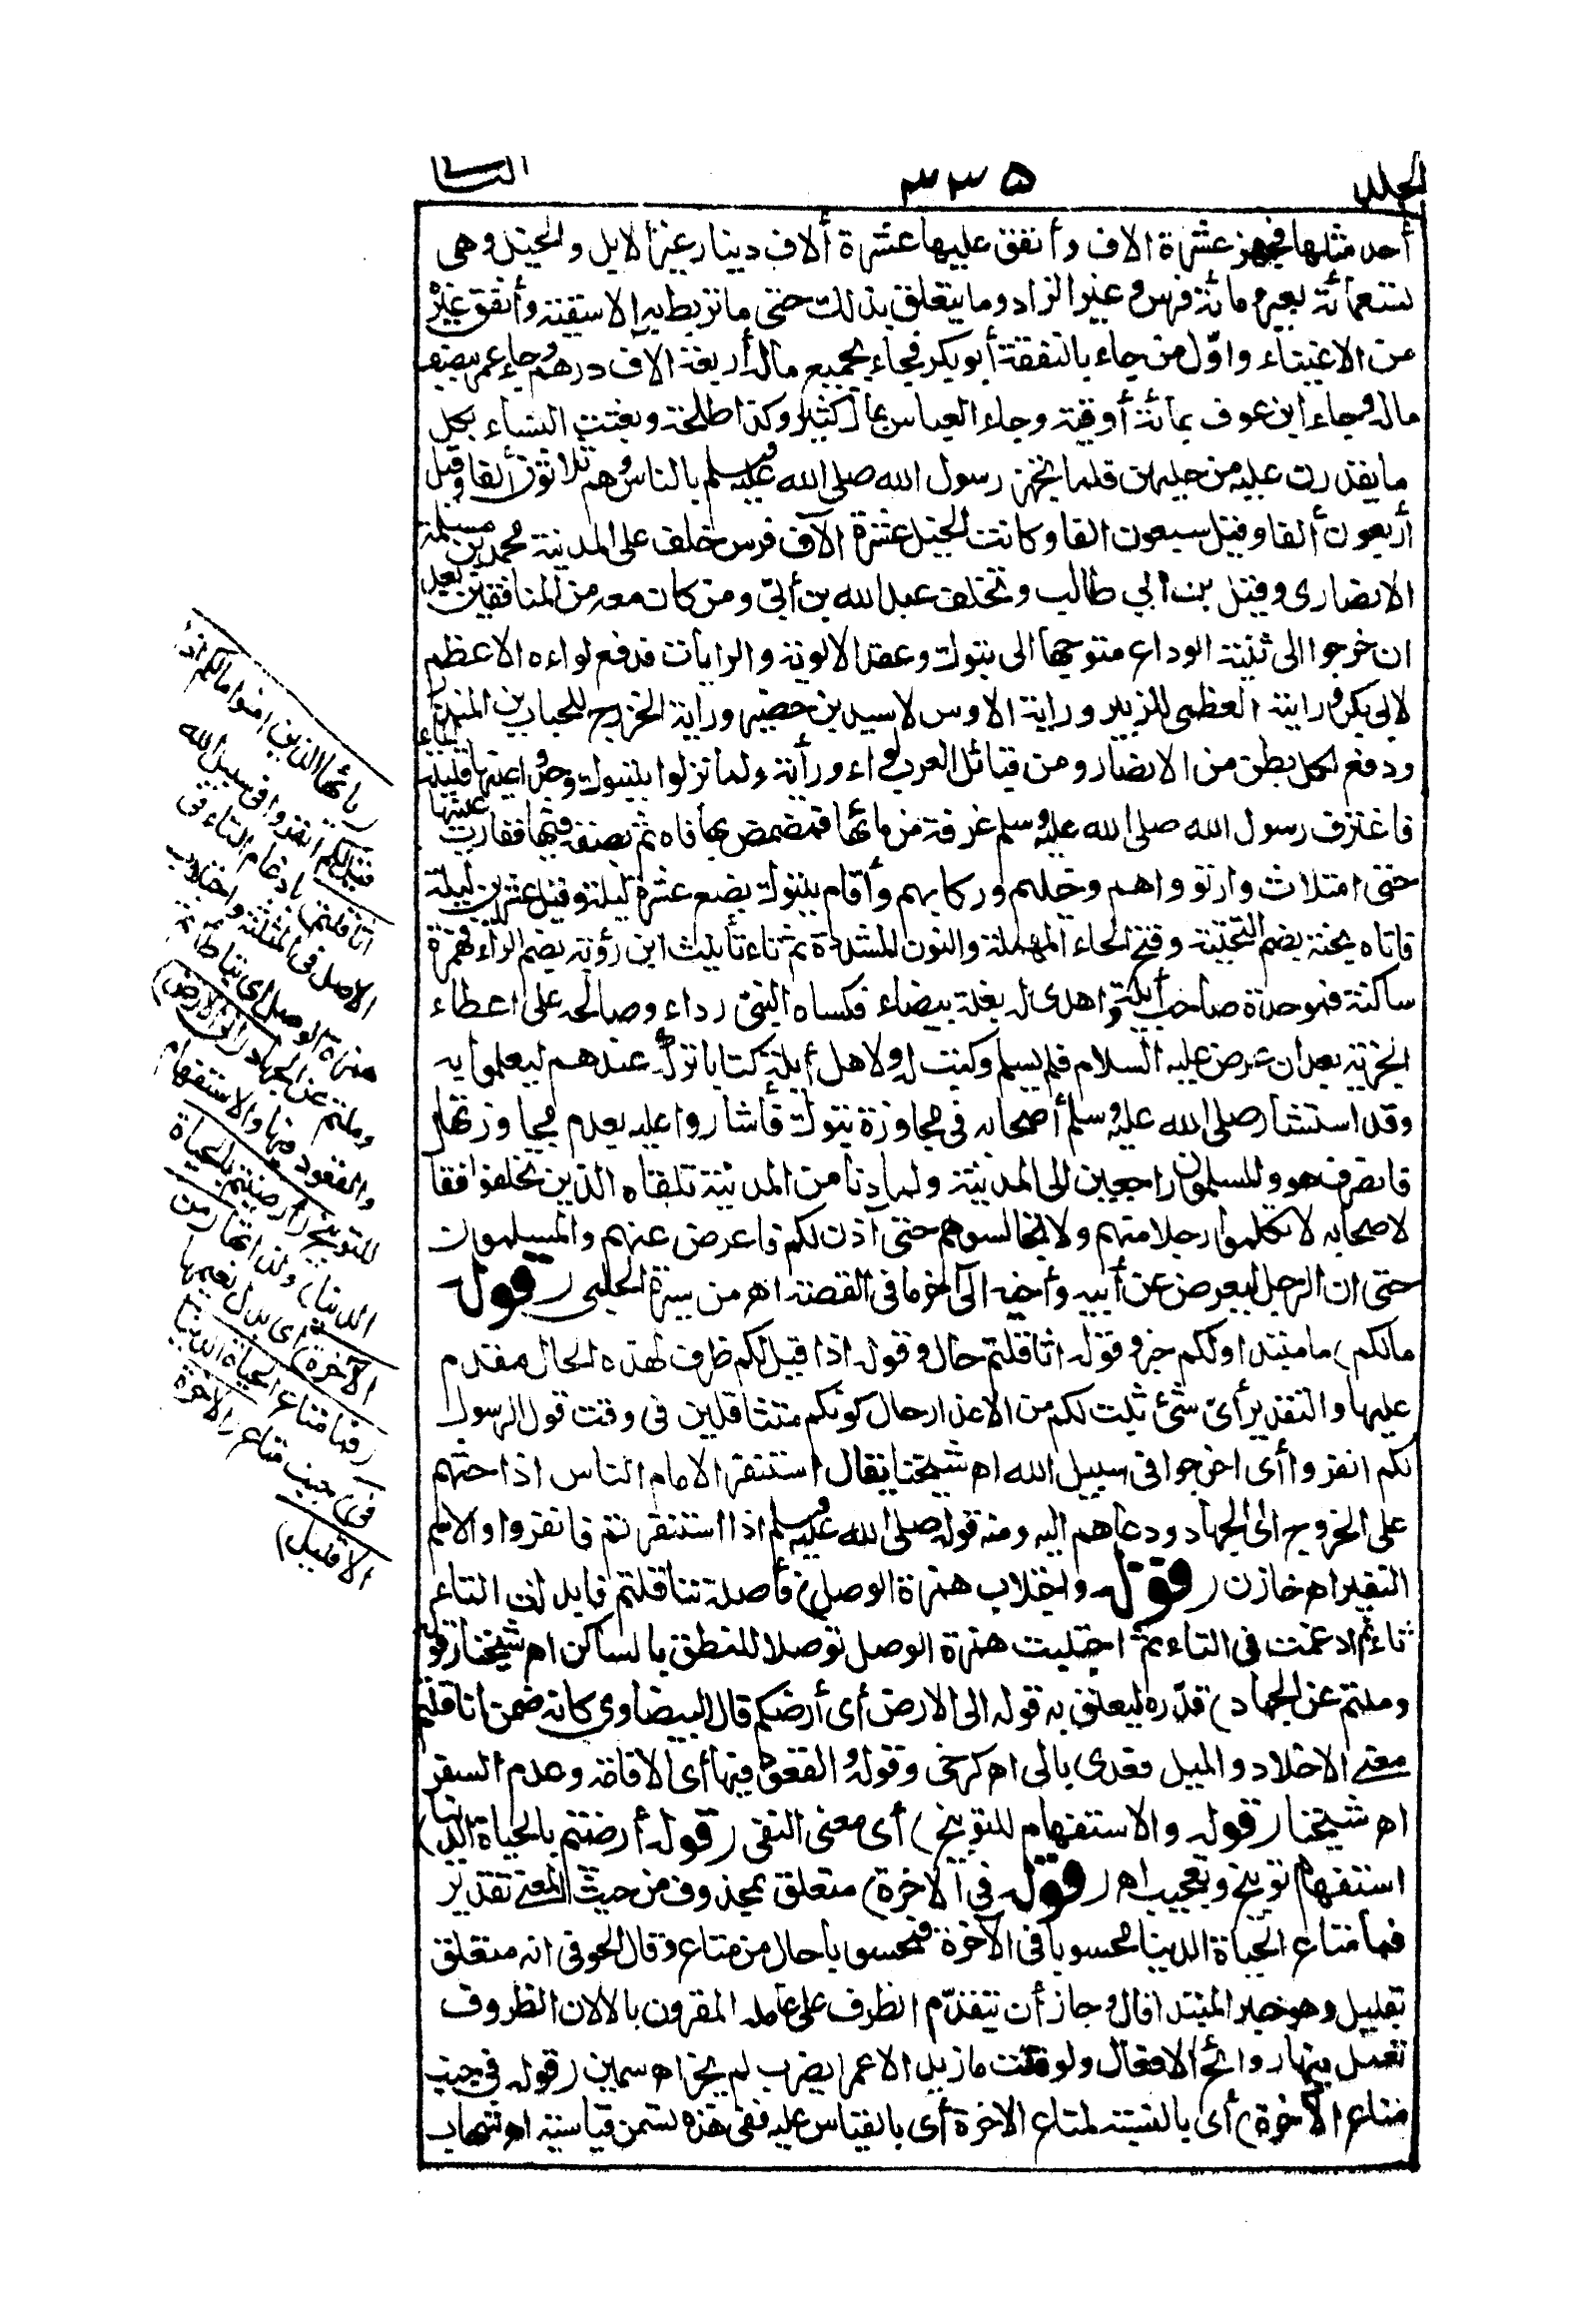 الجلد ٣٣٥ الثانى
أحد مثلها فجهز عشرة الاف وأنفق عليها عشرة ألاف دينار غير الابل والخيل وهى
تسعمائة بعير ومائة فرس وغير الزاد وما يتعلق بذلك حتى ما تربط به الاسقية وأنفق غيره
من الاغنياء واوّل من جاء بالنفقة أبو بكر فجاء بجميع ماله أربعة الاف درهم وجاء عمر بنصف
ماله وجاء ابن عوف بمائة أوقية وجاء العباس بمال كثير وكذا طلحة وبعثت النساء بكل
ما يقدرن عليه من حليهن فلما تجهز رسول الله صلى الله عليه وسلم بالناس وهم ثلاثون ألفا وقيل
أربعون ألفا وقيل سبعون الفا وكانت الخيل عشرة الآف فرس خلف على المدينة محمد بن مسلمة
الانصارى وقيل بن ابي طالب وتخلف عبد الله بن أبىّ ومن كان معه من المنافقين بعد
ان خرجوا الى ثنية الوداع متوجها الى تبوك وعقد الالوية والرايات فدفع لواءه الاعظم
لابى بكر ورايته العظمى للزبير وراية الاوس لاسيد بن حضير وراية الخزرج للحباب بن المنذر
ودفع لكل بطن من الانصار ومن قبائل العرب لواء وراية ولما نزلوا بتبوك وجدوا عينها قليلة الماء
فاغترف رسول الله صلى الله عليه وسلم غرفة من مائها فمضمض بها فاه ثم بصقه فيها ففارت عينها
حتى امتلات وارتووا هم وخيلهم وركابهم وأقام بتبوك بضع عشرة ليلة وقيل عشرين ليلة
فاتاه يحنة بضم التحتية وفتح الحاء المهملة والنون المشددة ثم تاء تأنيث ابن رؤبة بضم الراء فهمزة
ساكنة فموحدة صاحب أيلة واهدى له بغلة بيضاء فكساه النبىّ رداء وصالحه على اعطاء
الجزية بعد ان عرض عليه السلام فلم يسلم وكتب له ولاهل أيلة كتابا تركه عندهم ليعملوا به
وقد استشار صلى الله عليه وسلم أصحابه فى مجاوزة تبوك فأشاروا عليه بعدم مجاوزتها
فانصرف هو والمسلمون راجعين الى المدينة ولما دنا من المدينة تلقاه الذين تخلفوا فقال
لاصحابه لا تكلموا رجلا منهم ولا تجالسوهم حتى آذن لكم فاعرض عنهم والمسلمون
حتى ان الرجل ليعرض عن أبيه وأخيه الى آخر ما فى القصة اهـ من سيرة الحلبى (قوله
مالكم) ما مبتدا ولكم خبر وقوله اثاقلتم حال وقوله اذا قيل لكم ظرف لهذه الحال مقدم
عليها والتقدير أىّ شئ ثبت لكم من الاعذار حال كونكم متثاقلين فى وقت قول الرسول
لكم انفروا أى اخرجوا فى سبيل الله اهـ شيخنا يقال استنفر الامام الناس اذا حثهم
على الخروج الى الجهاد ودعاهم اليه ومنه قوله صلى الله عليه وسلم اذا استنفرتم فانفروا والاسم
النفير اهـ خازن (قوله واجتلاب همزة الوصل) فأصله تثاقلتم فابدلت التاء
ثاء ثم ادغمت فى الثاء ثم اجتلبت همزة الوصل توصلا للنطق بالساكن اهـ شيخنا (قوله
وملتم عن الجهاد) قدّره ليعلق به قوله الى الارض أى أرضكم قال البيضاوى كانه ضمن اثاقلتم
معنى الاخلاد والميل فعدى بالى اهـ كرخى وقوله والقعود فيها أى الاقامة وعدم السفر
اهـ شيخنا (قوله والاستفهام للتوبيخ) أى معنى النفى (قوله أرضيتم بالحياة الدنيا)
استفهام توبيخ وتعجيب اهـ (قوله فى الآخرة) متعلق بمحذوف من حيث المعنى تقديره
فما متاع الحياة الدنيا محسوبا فى الآخرة فمحسوبا حال من متاع وقال الحوفى انه متعلق
بقليل وهو خبر المبتدا قال وجاز أن يتقدّم الظرف على عامله المقرون بالا لان الظروف
تعمل فيها روائح الافعال ولو قلت ما زيد الا عمرا يضرب لم يجز اهـ سمين (قوله فى جنب
متاع الآخرة) أى بالنسبة لمتاع الاخرة أى بالقياس عليه ففى هذه تسمى قياسية اهـ شهاب
(يا أيها الذين امنوا مالكم اذا
قيل لكم انفروا فى سبيل الله
اثاقلتم) بادغام التاء فى
الاصل فى المثلثة واجتلاب
همزة الوصل اى تباطأتم
وملتم عن الجهاد (الى الارض)
والقعود فيها والاستفهام
للتوبيخ (أرضيتم بالحياة
الدنيا) ولذاتها (من
الآخرة) اى بدل نعيمها
(فما متاع الحياة الدنيا
فى) جنب متاع (الآخرة
الا قليل)